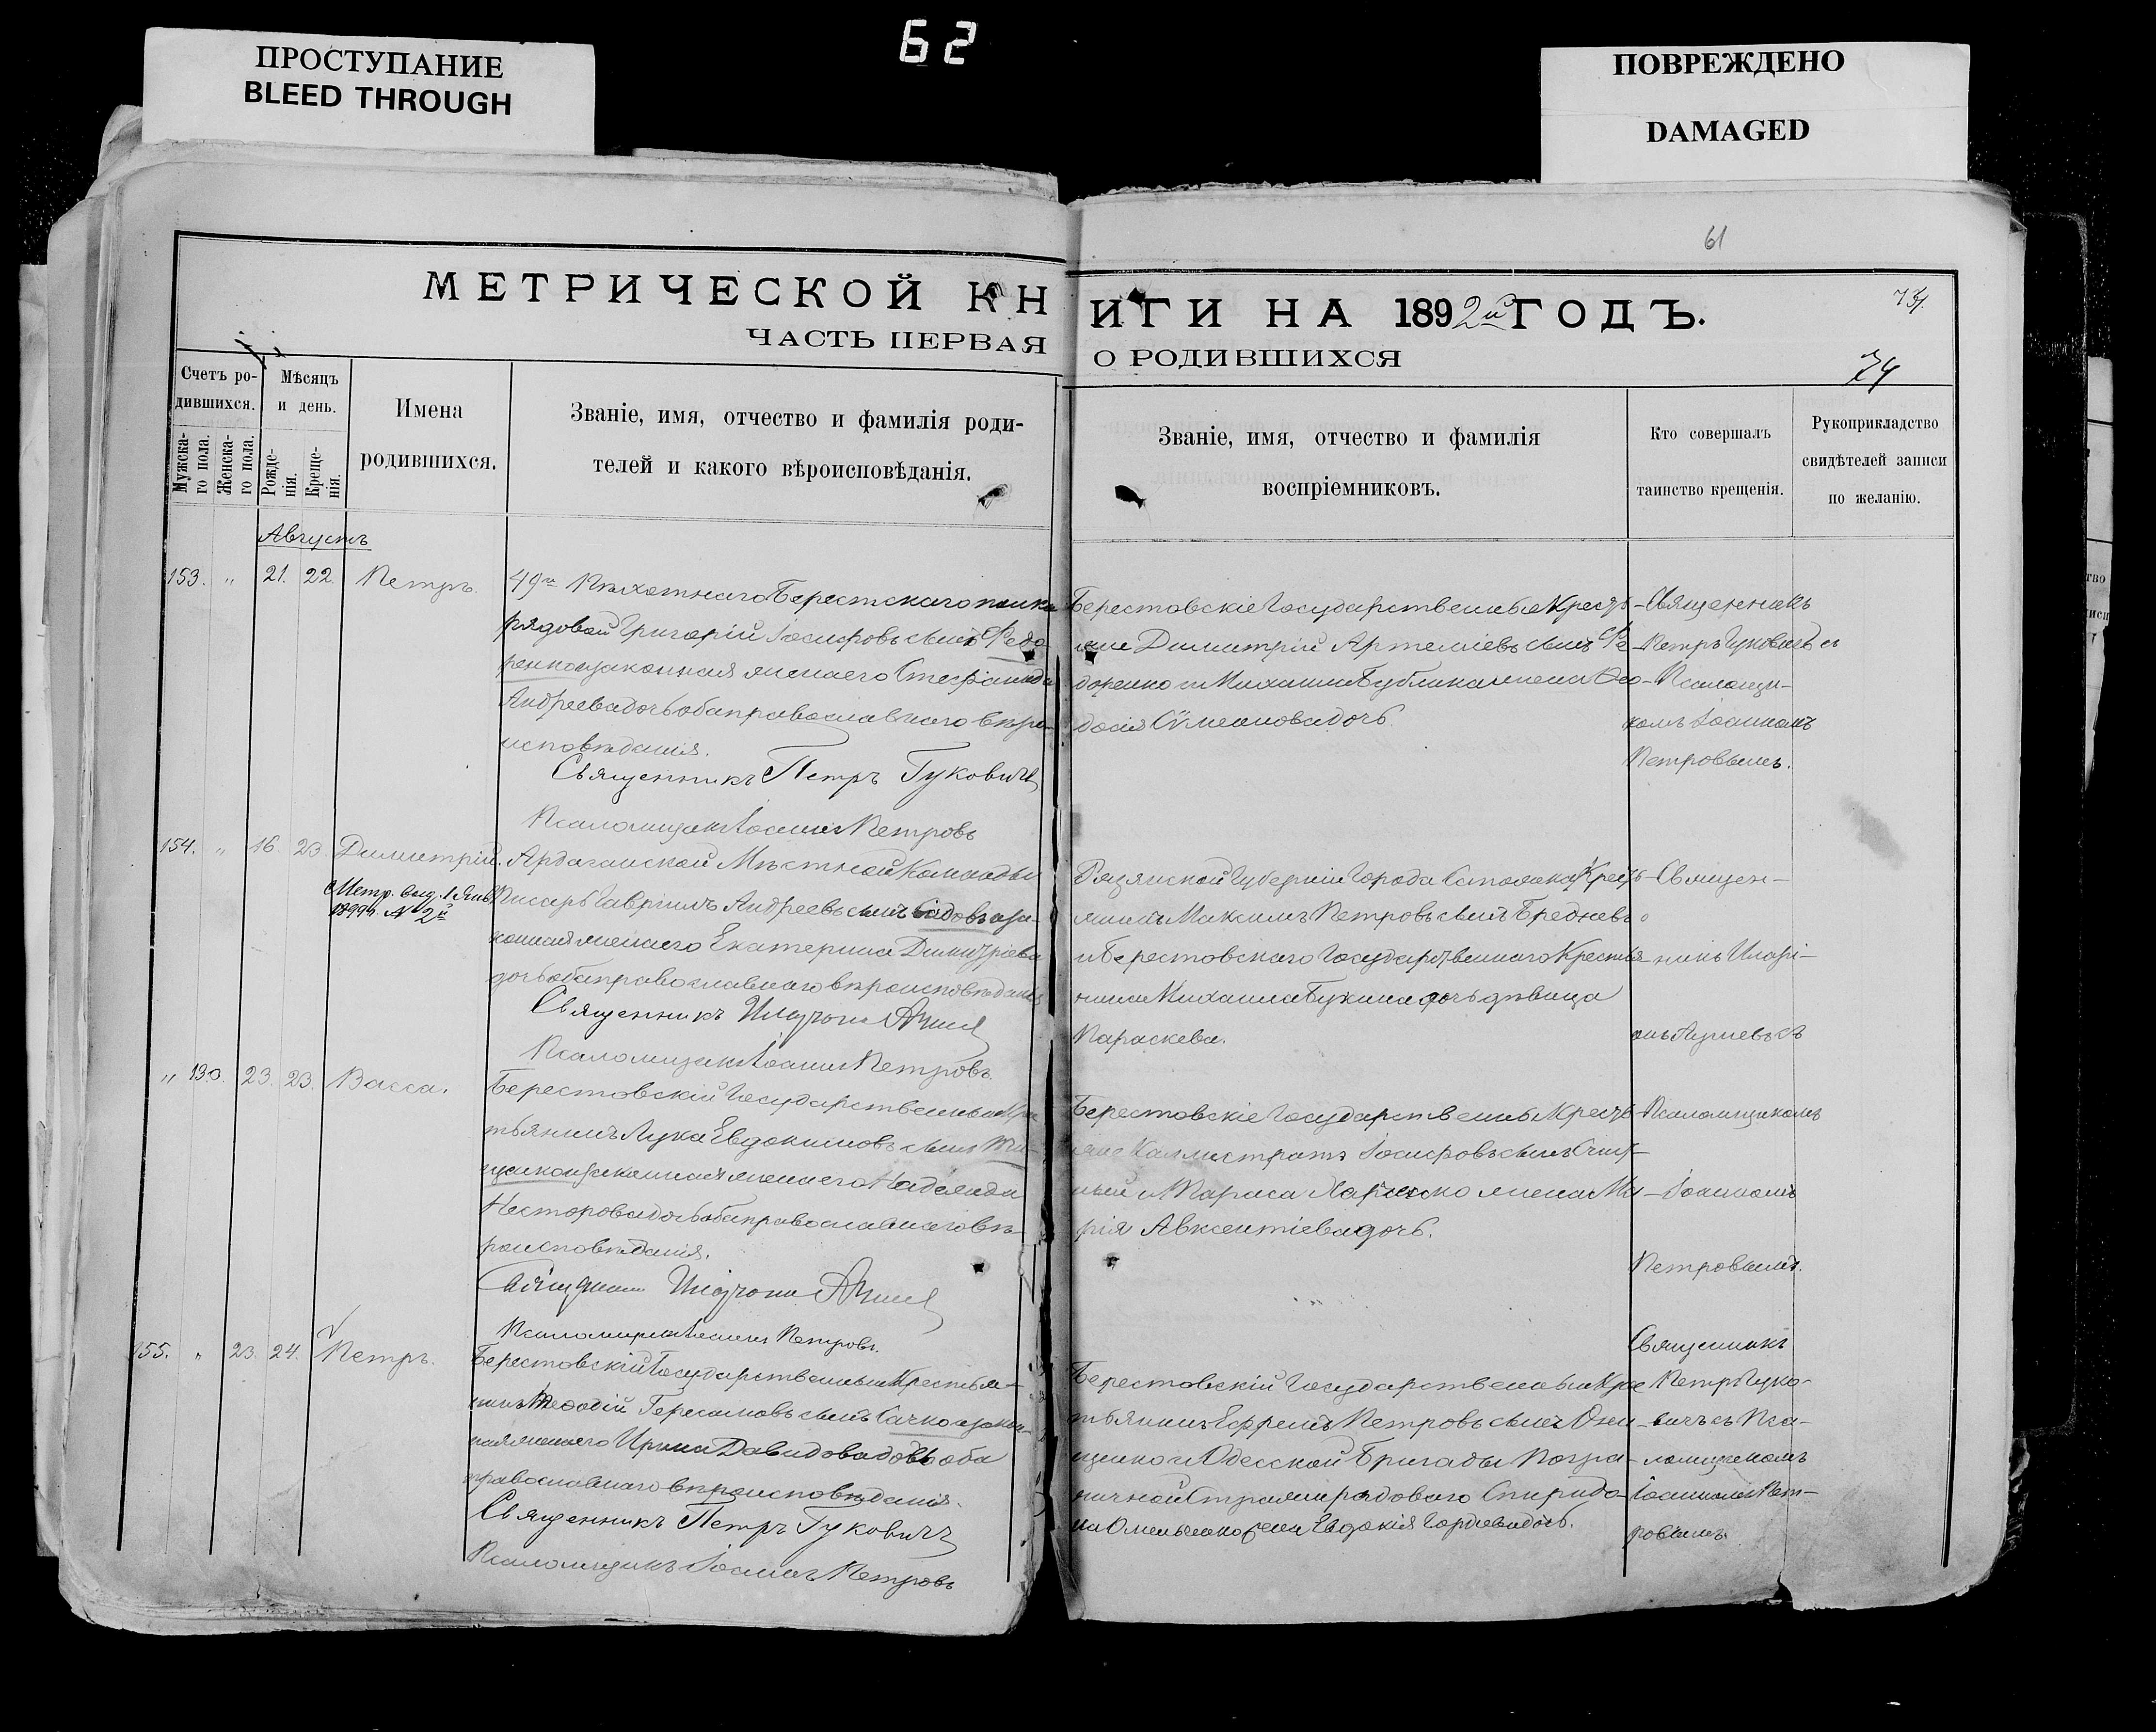 ПРОСТУПАНИЕ
BLEED THROUGH
62
ПОВРЕЖДЕНО
DAMAGED
61
МЕТРИЧЕСКОЙ КНИГИ НА 1892й ГОДЪ.
ЧАСТЬ ПЕРВАЯ О РОДИВШИХСЯ
74
Счетъ ро-
дившихся.
Мужска-
го пола.
Женска-
го пола.
Мѣсяцъ
и день.
Рожде-
нія.
Креще-
нія.
Имена
родившихся.
Званіе, имя, отчество и фамилія роди-
телей и какого вѣроисповѣданія.
Званіе, имя, отчество и фамилія
воспріемниковъ.
Кто совершалъ
таинство крещенія.
Рукоприкладство
свидѣтелей записи
по желанію.
Августъ
153. " 21. 22. Петръ.
49го Пѣхотнаго Берестскаго полка
рядовой Григорій Іосифовъ сынъ Ѳедо
ренко и законная жена его Стефанида
Андреева дочь оба православнаго вѣро-
исповѣданія.
Священникъ Петръ Гуковичъ
Псаломщикъ Іоаннъ Петровъ
Берестовскіе Государственные Кресть-
яне Димитрій Артеміевъ сынъ Ѳе-
доренко и Михаила Бублика жена Ѳео-
досія Сѵмеонова дочь.
Священникъ
Петръ Гуковичъ съ
Псаломщи-
комъ Іоанномъ
Петровымъ.
154. " 16. 23. Димитрій.
Метр. выд. 1 Янв
№ 2й
Ардаганской Мѣстной Команды
Писарь Гавріилъ Андреевъ сынъ и за-
конная жена его Екатерина Димитріева
дочь оба православнаго вѣроисповѣданія
Священникъ
Псаломщикъ Іоаннъ Петровъ.
Рязанской Губерніи Города Кресть-
янинъ Максимъ Петровъ сынъ Бредневъ
и Берестовскаго Государственнаго Крестья-
нина Михаила дочь дѣвица
Параскева.
Священ-
никъ Иларі-
онъ съ
" 130. 23. 23. Васса.
Берестовскій Государственный Крес
тьянинъ Лука Евдокимовъ сынъ
и законная жена его Надежда
Несторова дочь оба православнаго вѣ-
роисповѣданія.
Псаломщикъ Іоаннъ Петровъ.
Берестовскіе Государственные Кресть-
яне Каллистратъ Іосифовъ сынъ
и Тараса жена Ма-
рія Авксентіева дочь.
Псаломщикомъ
Іоанномъ
Петровымъ.
155. " 23. 24. Петръ.
Берестовскій Государственный Крестья-
нинъ Герасимовъ сынъ Сачко и закон-
ная жена его Ирина Давидова дочь оба
православнаго вѣроисповѣданія.
Священникъ Петръ Гуковичъ
Псаломщикъ Іоаннъ Петровъ
Берестовскій Государственный Крес
тьянинъ Ефремъ Петровъ сынъ Они-
щенко и Одесской Бригады Погра-
ничной Стражи рядоваго Спиридо-
на Омельченко жена Евдокія Гордіева дочь.
Священникъ
Петръ Гуко-
вичъ съ Пса-
ломщикомъ
Іоанномъ Пет-
ровымъ.